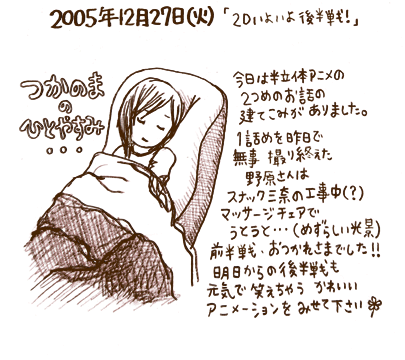 2005年12月27日(火)「2Dいよいよ後半戦!」
つかのま
の
ひとやすみ
・・・
今日は半立体アニメの
2つめのお話の
建てこみがありました。
1話めを昨日で
無事 撮り終えた
野原さんは
スナック三奈の工事中(?)
マッサージチェアで
うとうと…(めずらしい光景)
前半戦、おつかれさまでした!!
明日からの後半戦も
元気で笑えちゃう かわいい
アニメーションを みせて下さい